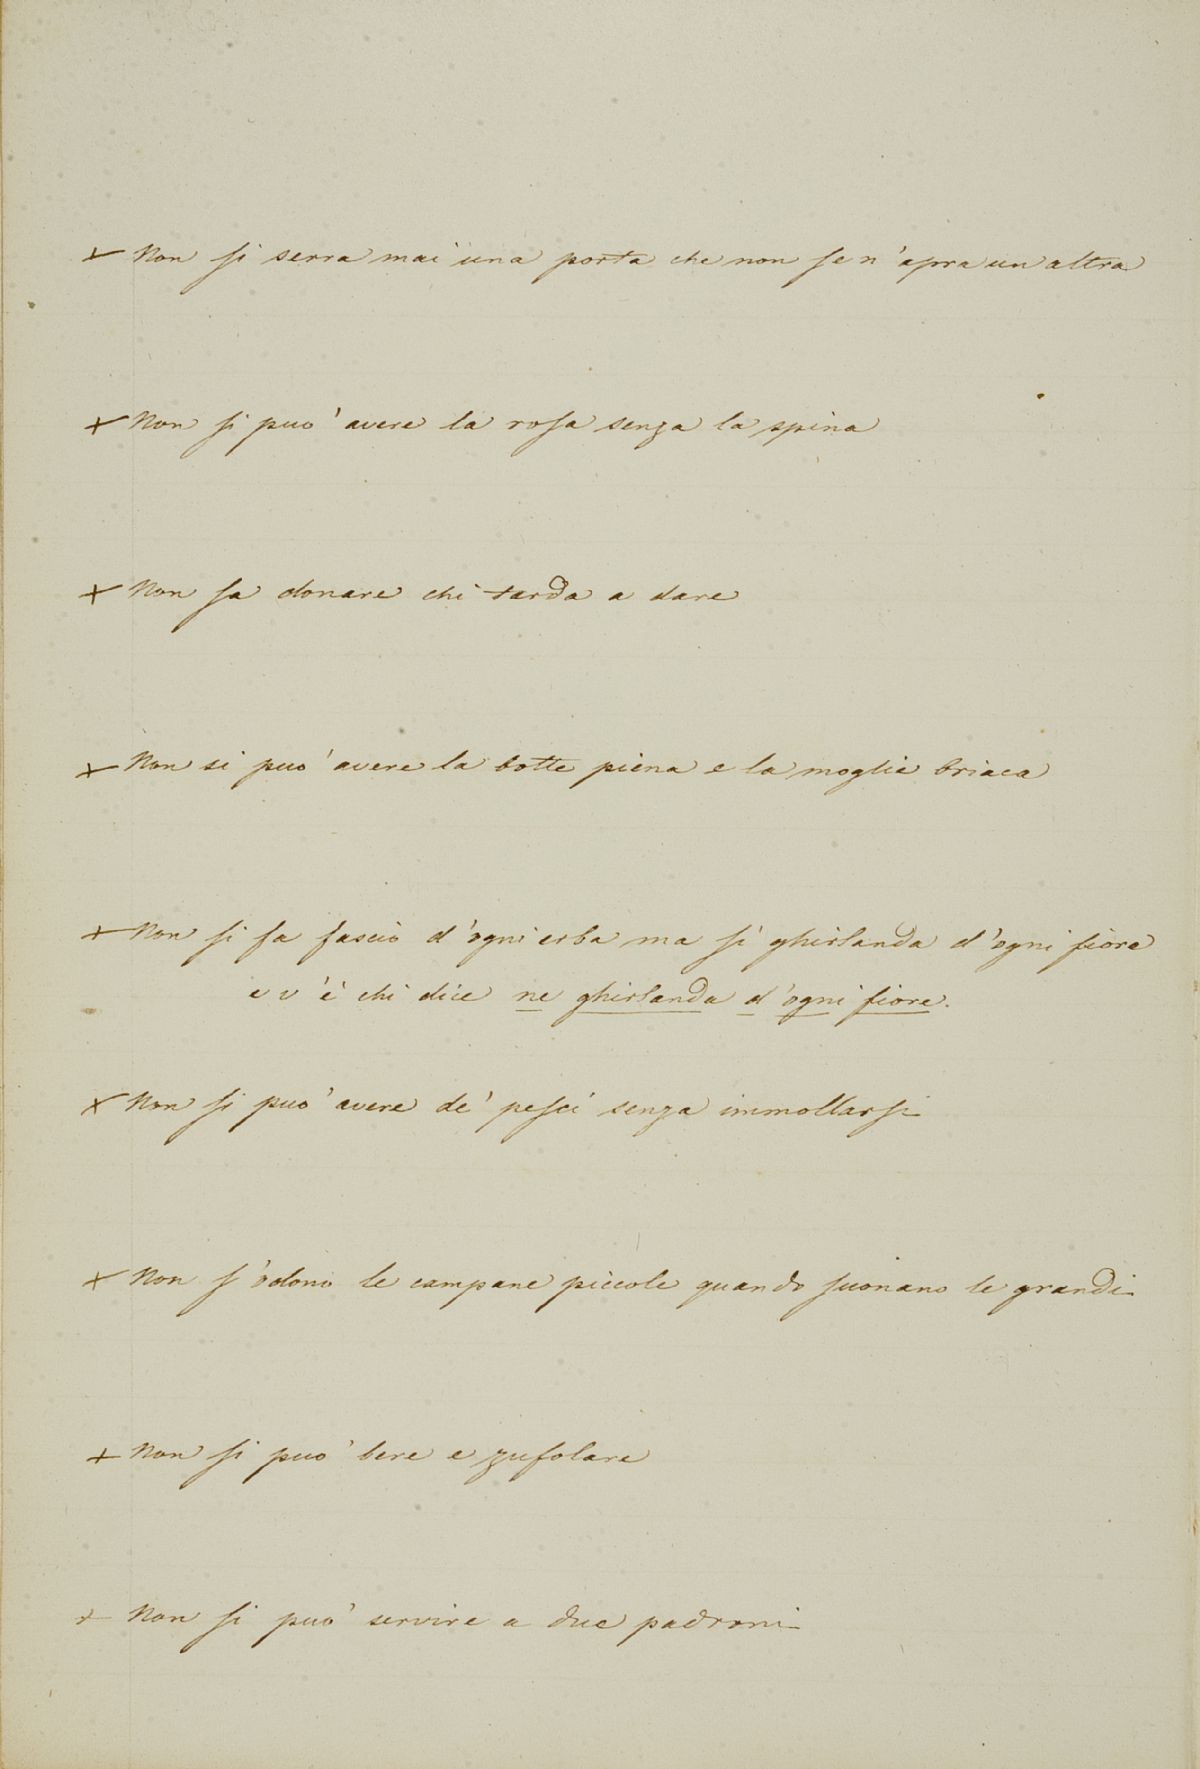 + Non si serra mai una porta che non se n'apra un altra
+ Non si puo' avere la rosa senza la spina
+ Non sa donare chi tarda a dare
+ Non si puo' avere la botte piena e la moglie briaca
+ Non si fa fascio d'ogni erba ma si ghirlanda d'ogni fiore
e v'è chi dice ne ghirlanda d'ogni fiore.
+ Non si puo' avere de' pesci senza immollarsi
+ Non s'odono le campane piccole quando suonano le grandi
+ Non si puo' bere e zufolare
+ Non si puo' servire a due padroni